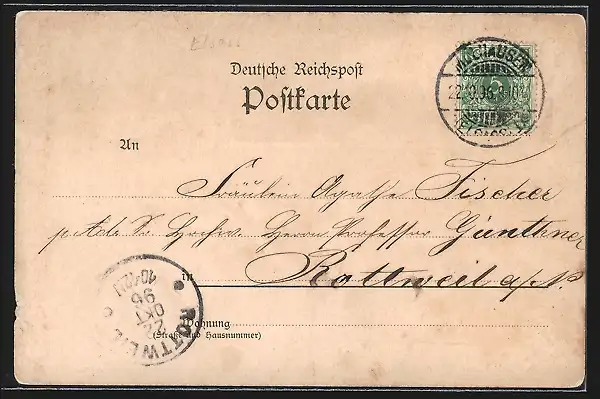 Elsass
Deutsche Reichspost
Postkarte
MÜLHAUSEN
22.10.96. 8-9
(ELSASS)
An
Fräulein Agathe Fischer
p. Adr. Sr. Hochw. Herrn Professor Günthner
in Rottweil a/N.
Wohnung
(Straße und Hausnummer)
ROTTWEIL
22 OKT 96